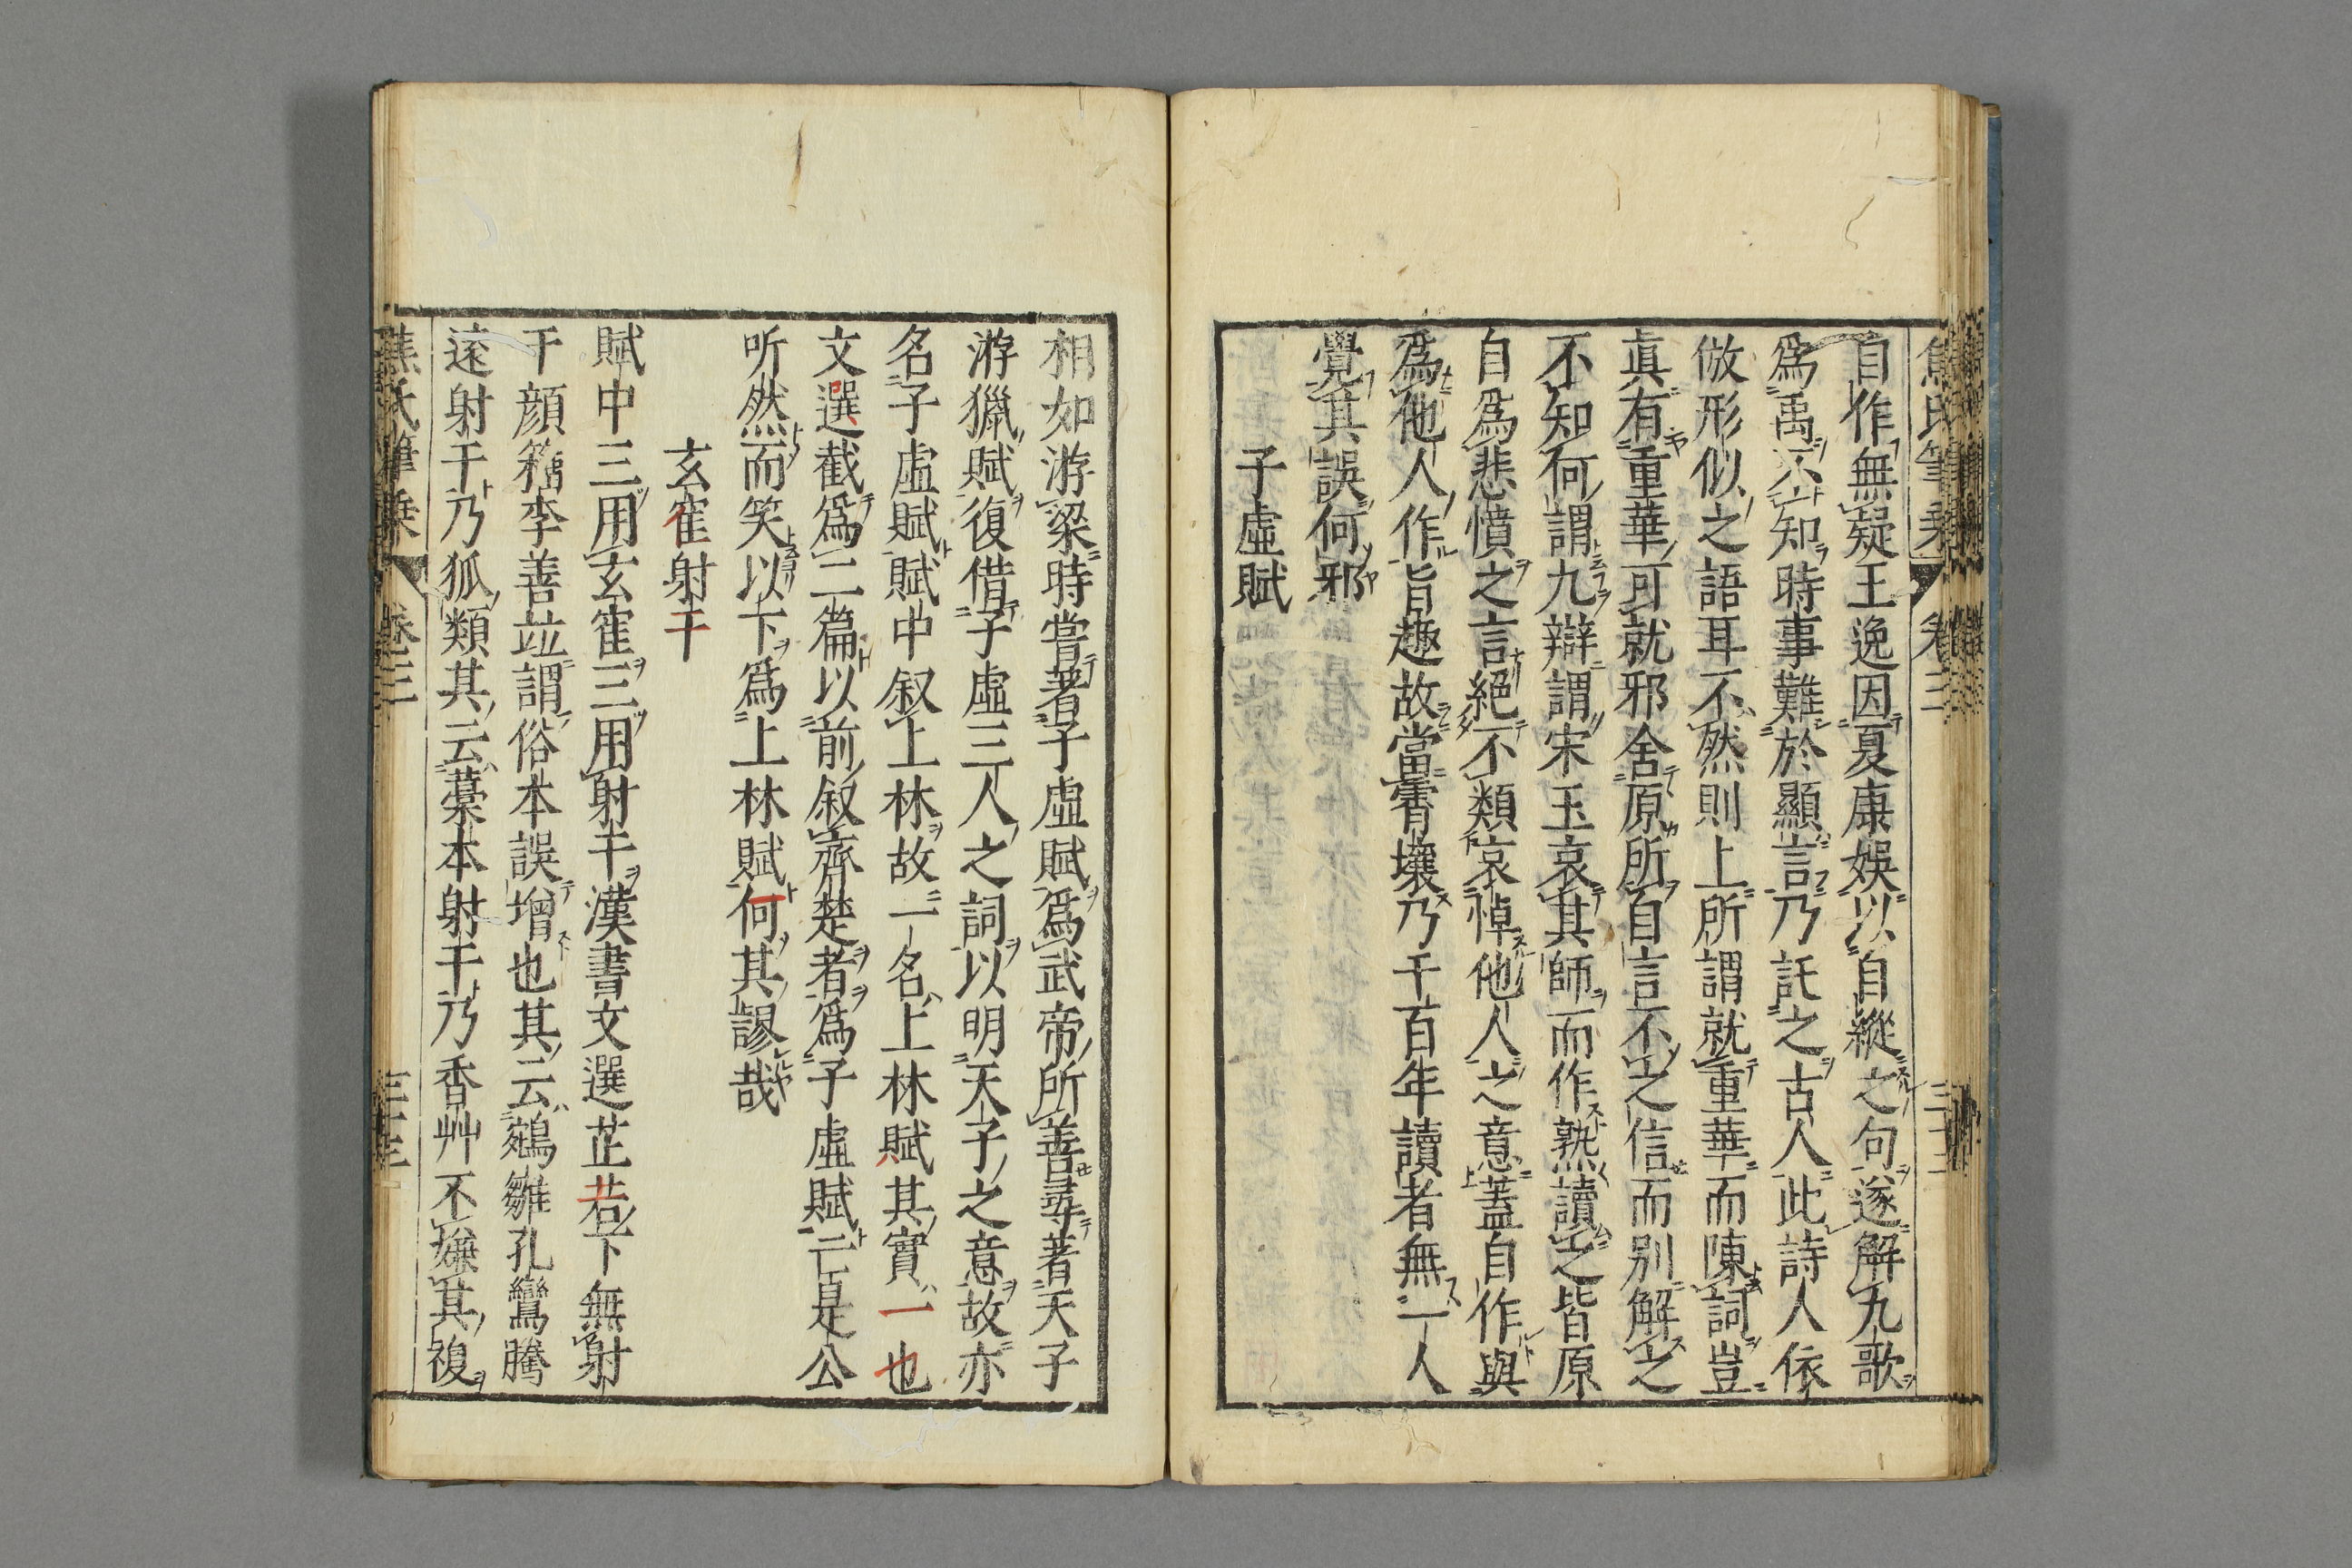 自作無疑王逸因夏康娛以自縱之句遂解九歌
爲禹不知時事難於顯言乃託之古人此詩人依
倣形似之語耳不然則上所謂就重華而陳詞豈
眞有重華可就邪舍原所自言不之信而別解之
不知何謂九辯謂宋玉哀其師而作熟讀之皆原
自爲悲憤之言絕不類哀悼他人之意蓋自作與
爲他人作旨趣故當霄壤乃千百年讀者無一人
覺其誤何邪
子虛賦
相如游梁時嘗著子虛賦爲武帝所善尋著天子
游獵賦復借子虛三人之詞以明天子之意故亦
名子虛賦賦中叙上林故一名上林賦其實一也
文選截爲二篇以前叙齊楚者爲子虛賦亡是公
听然而笑以下爲上林賦何其謬哉
玄寉射干
賦中三用玄寉三用射干漢書文選芷若下無射
干顔籀李善竝謂俗本誤增也其云鵷雛孔鸞騰
遠射干乃狐類其云藁本射干乃香艸不嫌其複
焦氏筆乗 卷三